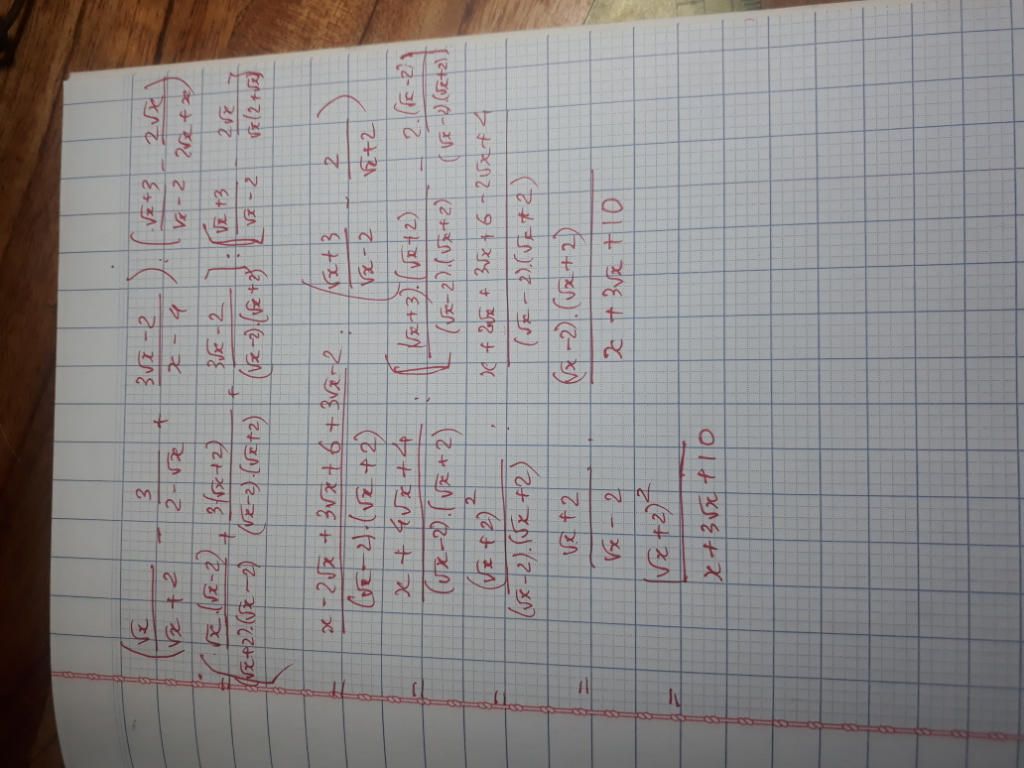 (√x/(√x+2) - 3/(2-√x) + (3√x-2)/(x-4)) : ((√x+3)/(√x-2) - 2√x/(2√x+x))
= [√x.(√x-2)/(√x+2).(√x-2) + 3(√x+2)/(√x-2).(√x+2) + (3√x-2)/(√x-2).(√x+2)] : [(√x+3)/(√x-2) - 2√x/√x(2+√x)]
= (x-2√x+3√x+6+3√x-2)/(√x-2).(√x+2) : ((√x+3)/(√x-2) - 2/(√x+2))
= (x+4√x+4)/(√x-2).(√x+2) : [(√x+3).(√x+2)/(√x-2).(√x+2) - 2.(√x-2)/(√x-2)(√x+2)]
= (√x+2)²/(√x-2).(√x+2) : (x+2√x+3√x+6-2√x+4)/(√x-2).(√x+2)
= (√x+2)/(√x-2) . (√x-2).(√x+2)/(x+3√x+10)
= (√x+2)²/(x+3√x+10)